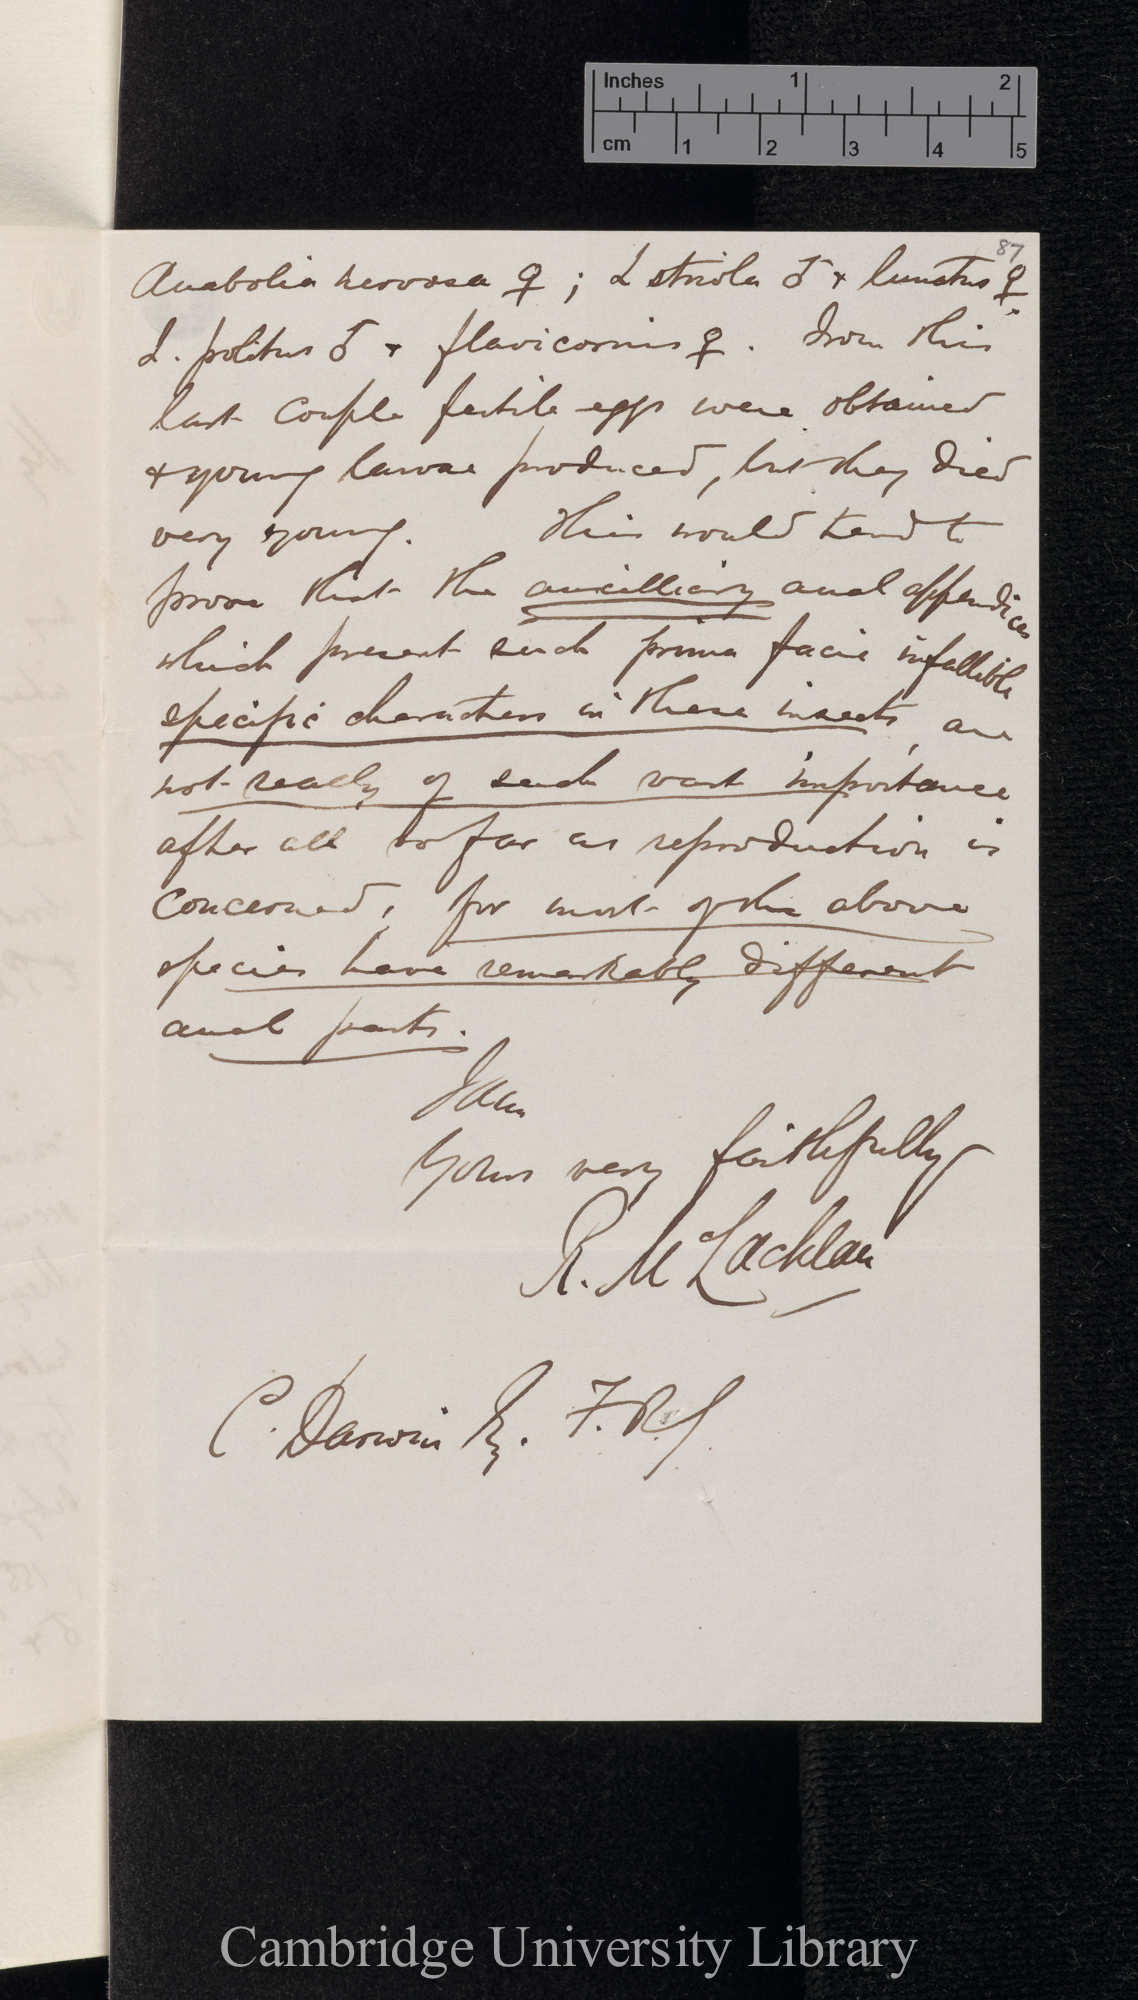 Inches 1 2
cm 1 2 3 4 5
87
Anabolia nervosa ♀ ; L striola ♂ & lunatus ♀.
L. politus ♂ & flavicornis ♀. From this
last couple fertile eggs were obtained
& young larvae produced, but they died
very young. This would tend to
prove that the auxilliary anal appendices
which present such prima facie infallible
specific characters in these insects, are
not really of such vast importance
after all so far as reproduction is
concerned, for most of the above
species have remarkably different
anal parts.
I am
Yours very faithfully
R. McLachlan
C. Darwin Esq. F.R.S.
Cambridge University Library